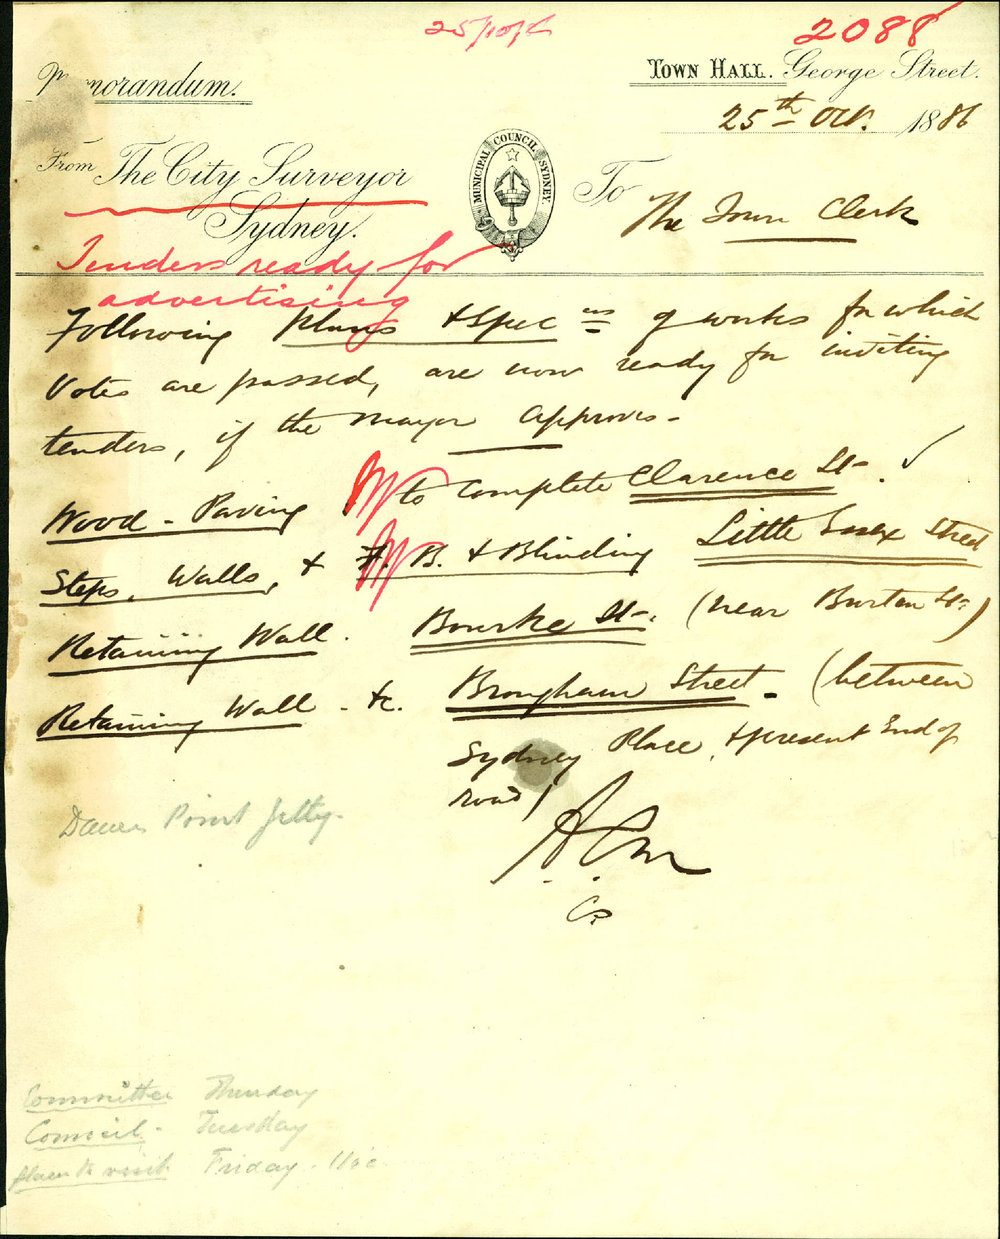 25/10/86
2088
Memorandum.
TOWN HALL. George Street.
25th Oct. 1886
From The City Surveyor
Sydney.
MUNICIPAL COUNCIL SYDNEY
To The Town Clerk
Tenders ready for
advertising
Following Plans & Specns of works for which
Votes are passed, are now ready for inviting
tenders, if the Mayor approves -
Wood-Paving to complete Clarence St-. ✓
Steps, Walls, & B. & Blinding Little Essex Street
Retaining Wall. Bourke St-. (near Burton St.)
Retaining Wall. &c. Brougham Street - (between
Sydney Place, & present End of
road)
CS
Dawes Point Jetty.
Committee Thursday
Council - Tuesday
visit Friday -